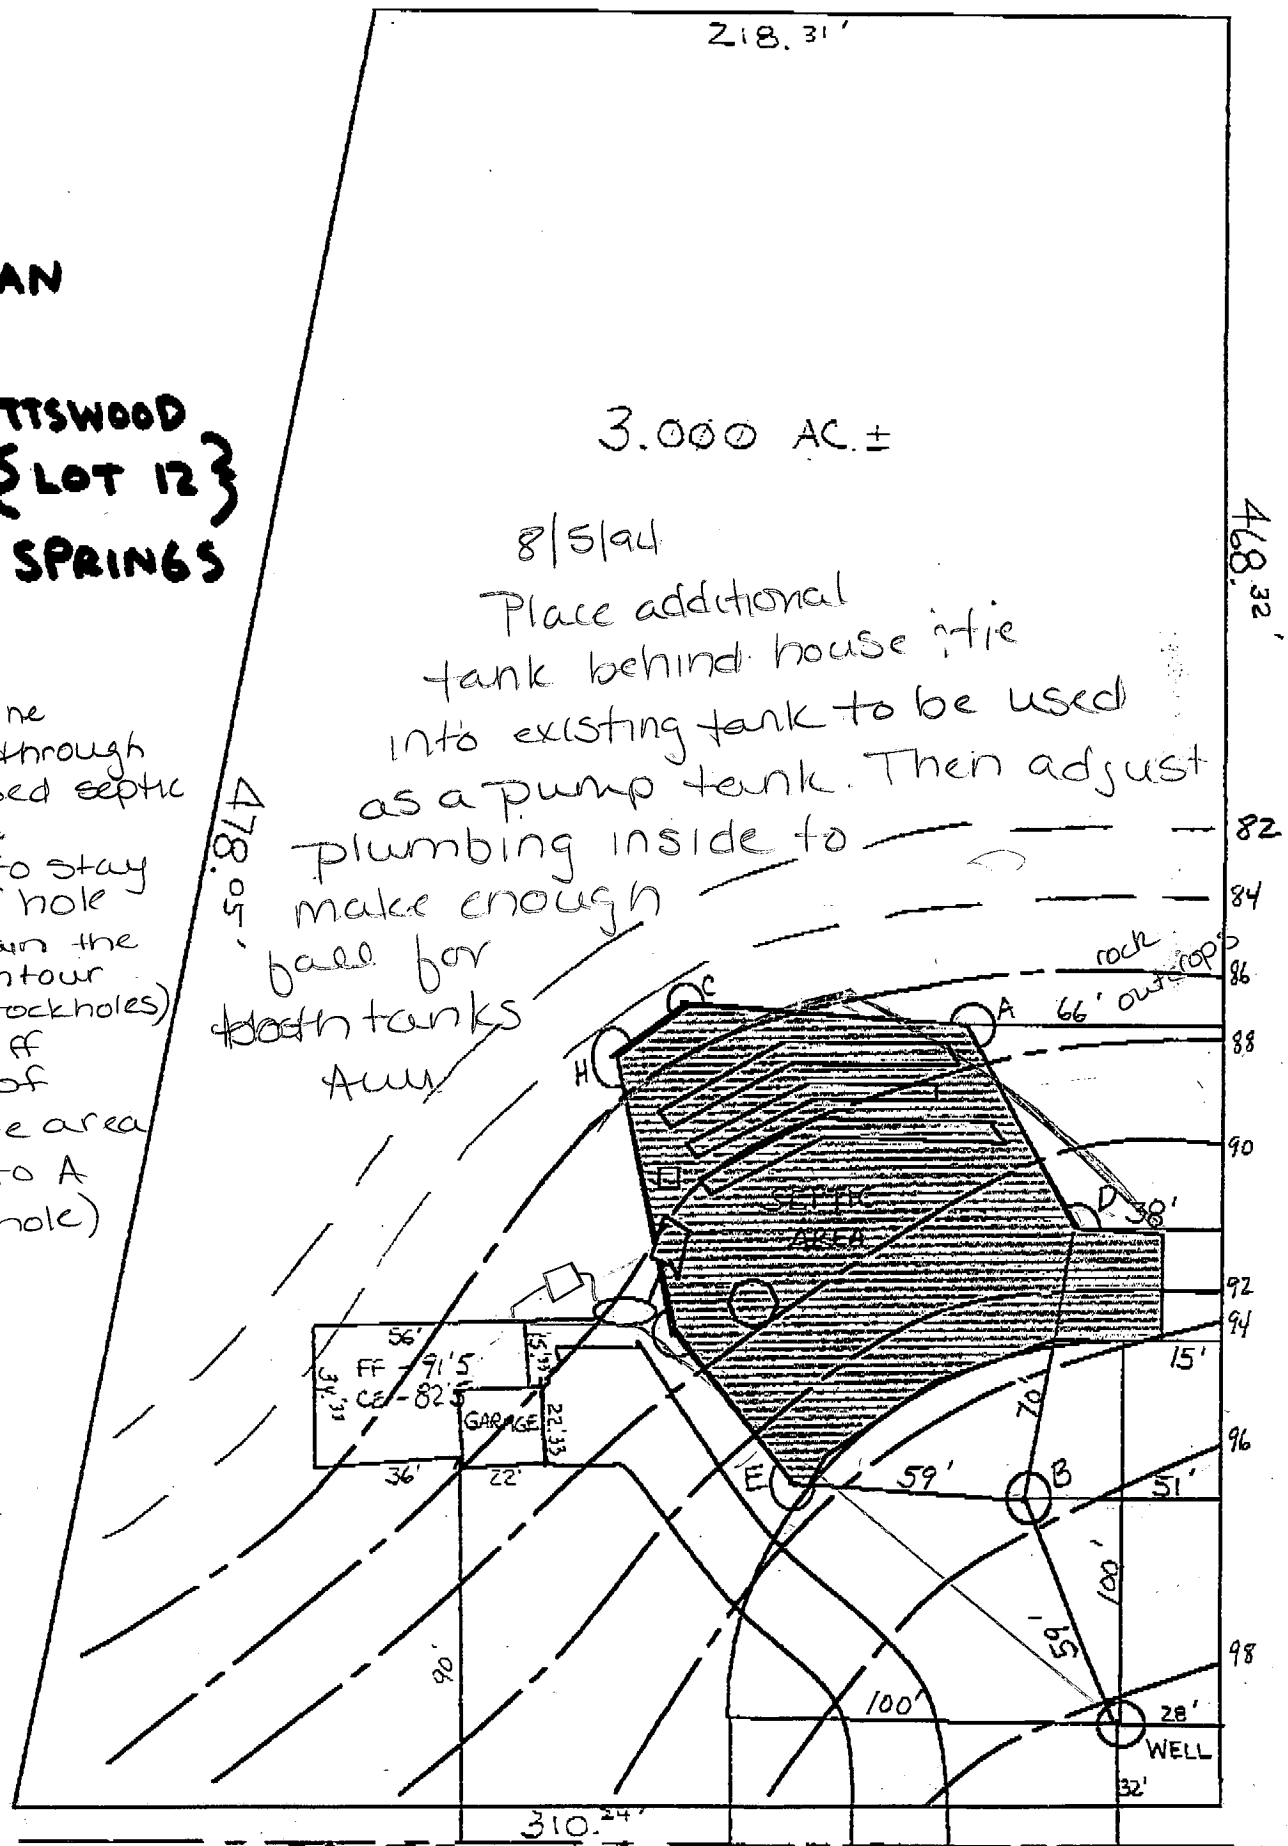 218.31'
AN
TTSWOOD
{LOT 12}
SPRINGS
3.000 AC.±
468.32'
478.05'
8/5/94
Place additional
tank behind house tie
into existing tank to be used
as a pump tank. Then adjust
plumbing inside to
make enough
fall for
both tanks
ne
through
sed septic
to stay
hole
the
ntour
rockholes)
ff
of
e area
to A
hole)
82
84
rock
outcrop's
86
C
A
66'
88
H
90
SEPTIC
AREA
D
38'
92
94
15'
56'
15.33
FF - 91'5
CE - 82'5
34.33
GARAGE
22.33
36'
22'
70
96
E
59'
B
51'
100'
59'
98
90'
100'
28'
WELL
32'
310.24'